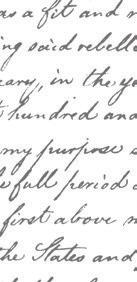 as a fit and n
ing said rebelle
eary, in the ye
t hundred and
my purpose s
e full period o
first above m
the States and